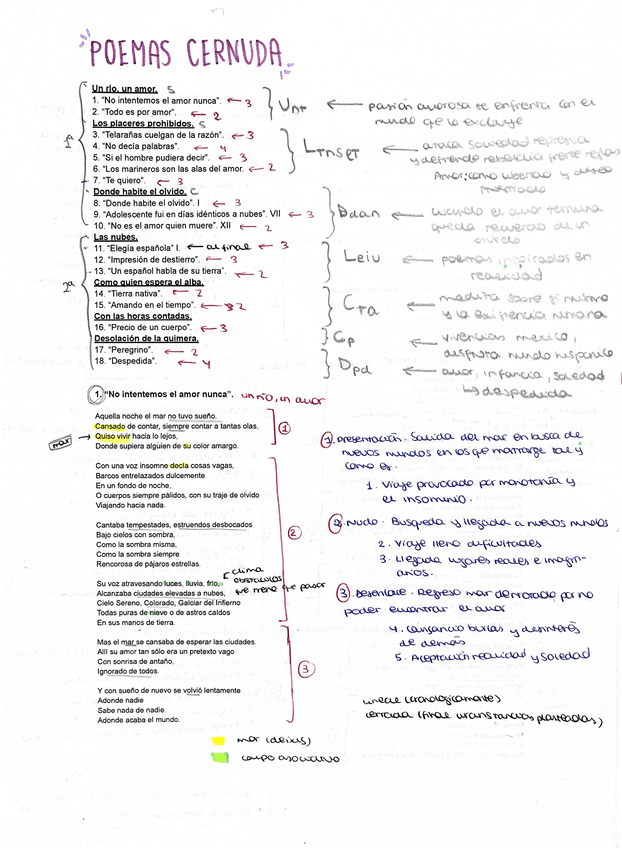 POEMAS CERNUDA
Un río, un amor. S
1. "No intentemos el amor nunca". ← 3
2. "Todo es por amor". ← 2
Los placeres prohibidos. S
3. "Telarañas cuelgan de la razón". ← 3
4. "No decía palabras". ← 4
5. "Si el hombre pudiera decir". ← 3
6. "Los marineros son las alas del amor. ← 2
7. "Te quiero". ← 3
Donde habite el olvido. C
8. "Donde habite el olvido". I ← 3
9. "Adolescente fui en días idénticos a nubes". VII ← 3
10. "No es el amor quien muere". XII ← 2
Las nubes.
11. "Elegía española" I. ← al final ← 3
12. "Impresión de destierro". ← 3
13. "Un español habla de su tierra". ← 2
Como quien espera el alba.
14. "Tierra nativa". ← 2
15. "Amando en el tiempo". ← 2
Con las horas contadas.
16. "Precio de un cuerpo". ← 3
Desolación de la quimera.
17. "Peregrino". ← 2
18. "Despedida". ← 4
1ª
2ª
← pasión amorosa se enfrenta con el
mundo que lo excluye
← ataca sociedad represiva
y defiende rebeldía frente reglas
Amor: como libertad y deseo
Ddan ← cuando el amor termina
queda recuerdo de un
olvido
Leiu ← poemas inspirados en
realidad
← medita sobre sí mismo
y la existencia humana
Cp ← vivencias mexico,
disfruta mundo hispanico
Dpd ← amor, infancia, soledad
↳ despedida
1. "No intentemos el amor nunca". un río, un amor
Aquella noche el mar no tuvo sueño.
Cansado de contar, siempre contar a tantas olas,
mar → Quiso vivir hacia lo lejos,
Donde supiera alguien de su color amargo.
1
Con una voz insomne decía cosas vagas,
Barcos entrelazados dulcemente
En un fondo de noche,
O cuerpos siempre pálidos, con su traje de olvido
Viajando hacia nada.
Cantaba tempestades, estruendos desbocados
Bajo cielos con sombra,
Como la sombra misma,
Como la sombra siempre
Rencorosa de pájaros estrellas.
2
Su voz atravesando luces, lluvia, frío,
Alcanzaba ciudades elevadas a nubes,
Cielo Sereno, Colorado, Glaciar del Infierno
Todas puras de nieve o de astros caídos
En sus manos de tierra.
clima
obstáculos
que tiene que pasar
Mas el mar se cansaba de esperar las ciudades.
Allí su amor tan sólo era un pretexto vago
Con sonrisa de antaño,
Ignorado de todos.
3
Y con sueño de nuevo se volvió lentamente
Adonde nadie
Sabe nada de nadie.
Adonde acaba el mundo.
mar (deixis)
campo asociativo
1. presentación. Salida del mar en busca de
nuevos mundos en los que mostrarse tal y
como es.
1. Viaje provocado por monotonía y
el insomnio.
2. Nudo. Busqueda y llegada a nuevos mundos
2. Viaje lleno dificultades
3. Llegada lugares reales e imagin-
arios.
3. Desenlace. Regreso mar derrotado por no
poder encontrar el amor
4. Cansancio burlas y desinterés
de demás
5. Aceptación realidad y soledad
lineal (cronologicamente)
cerrada (final circunstancias planteadas)